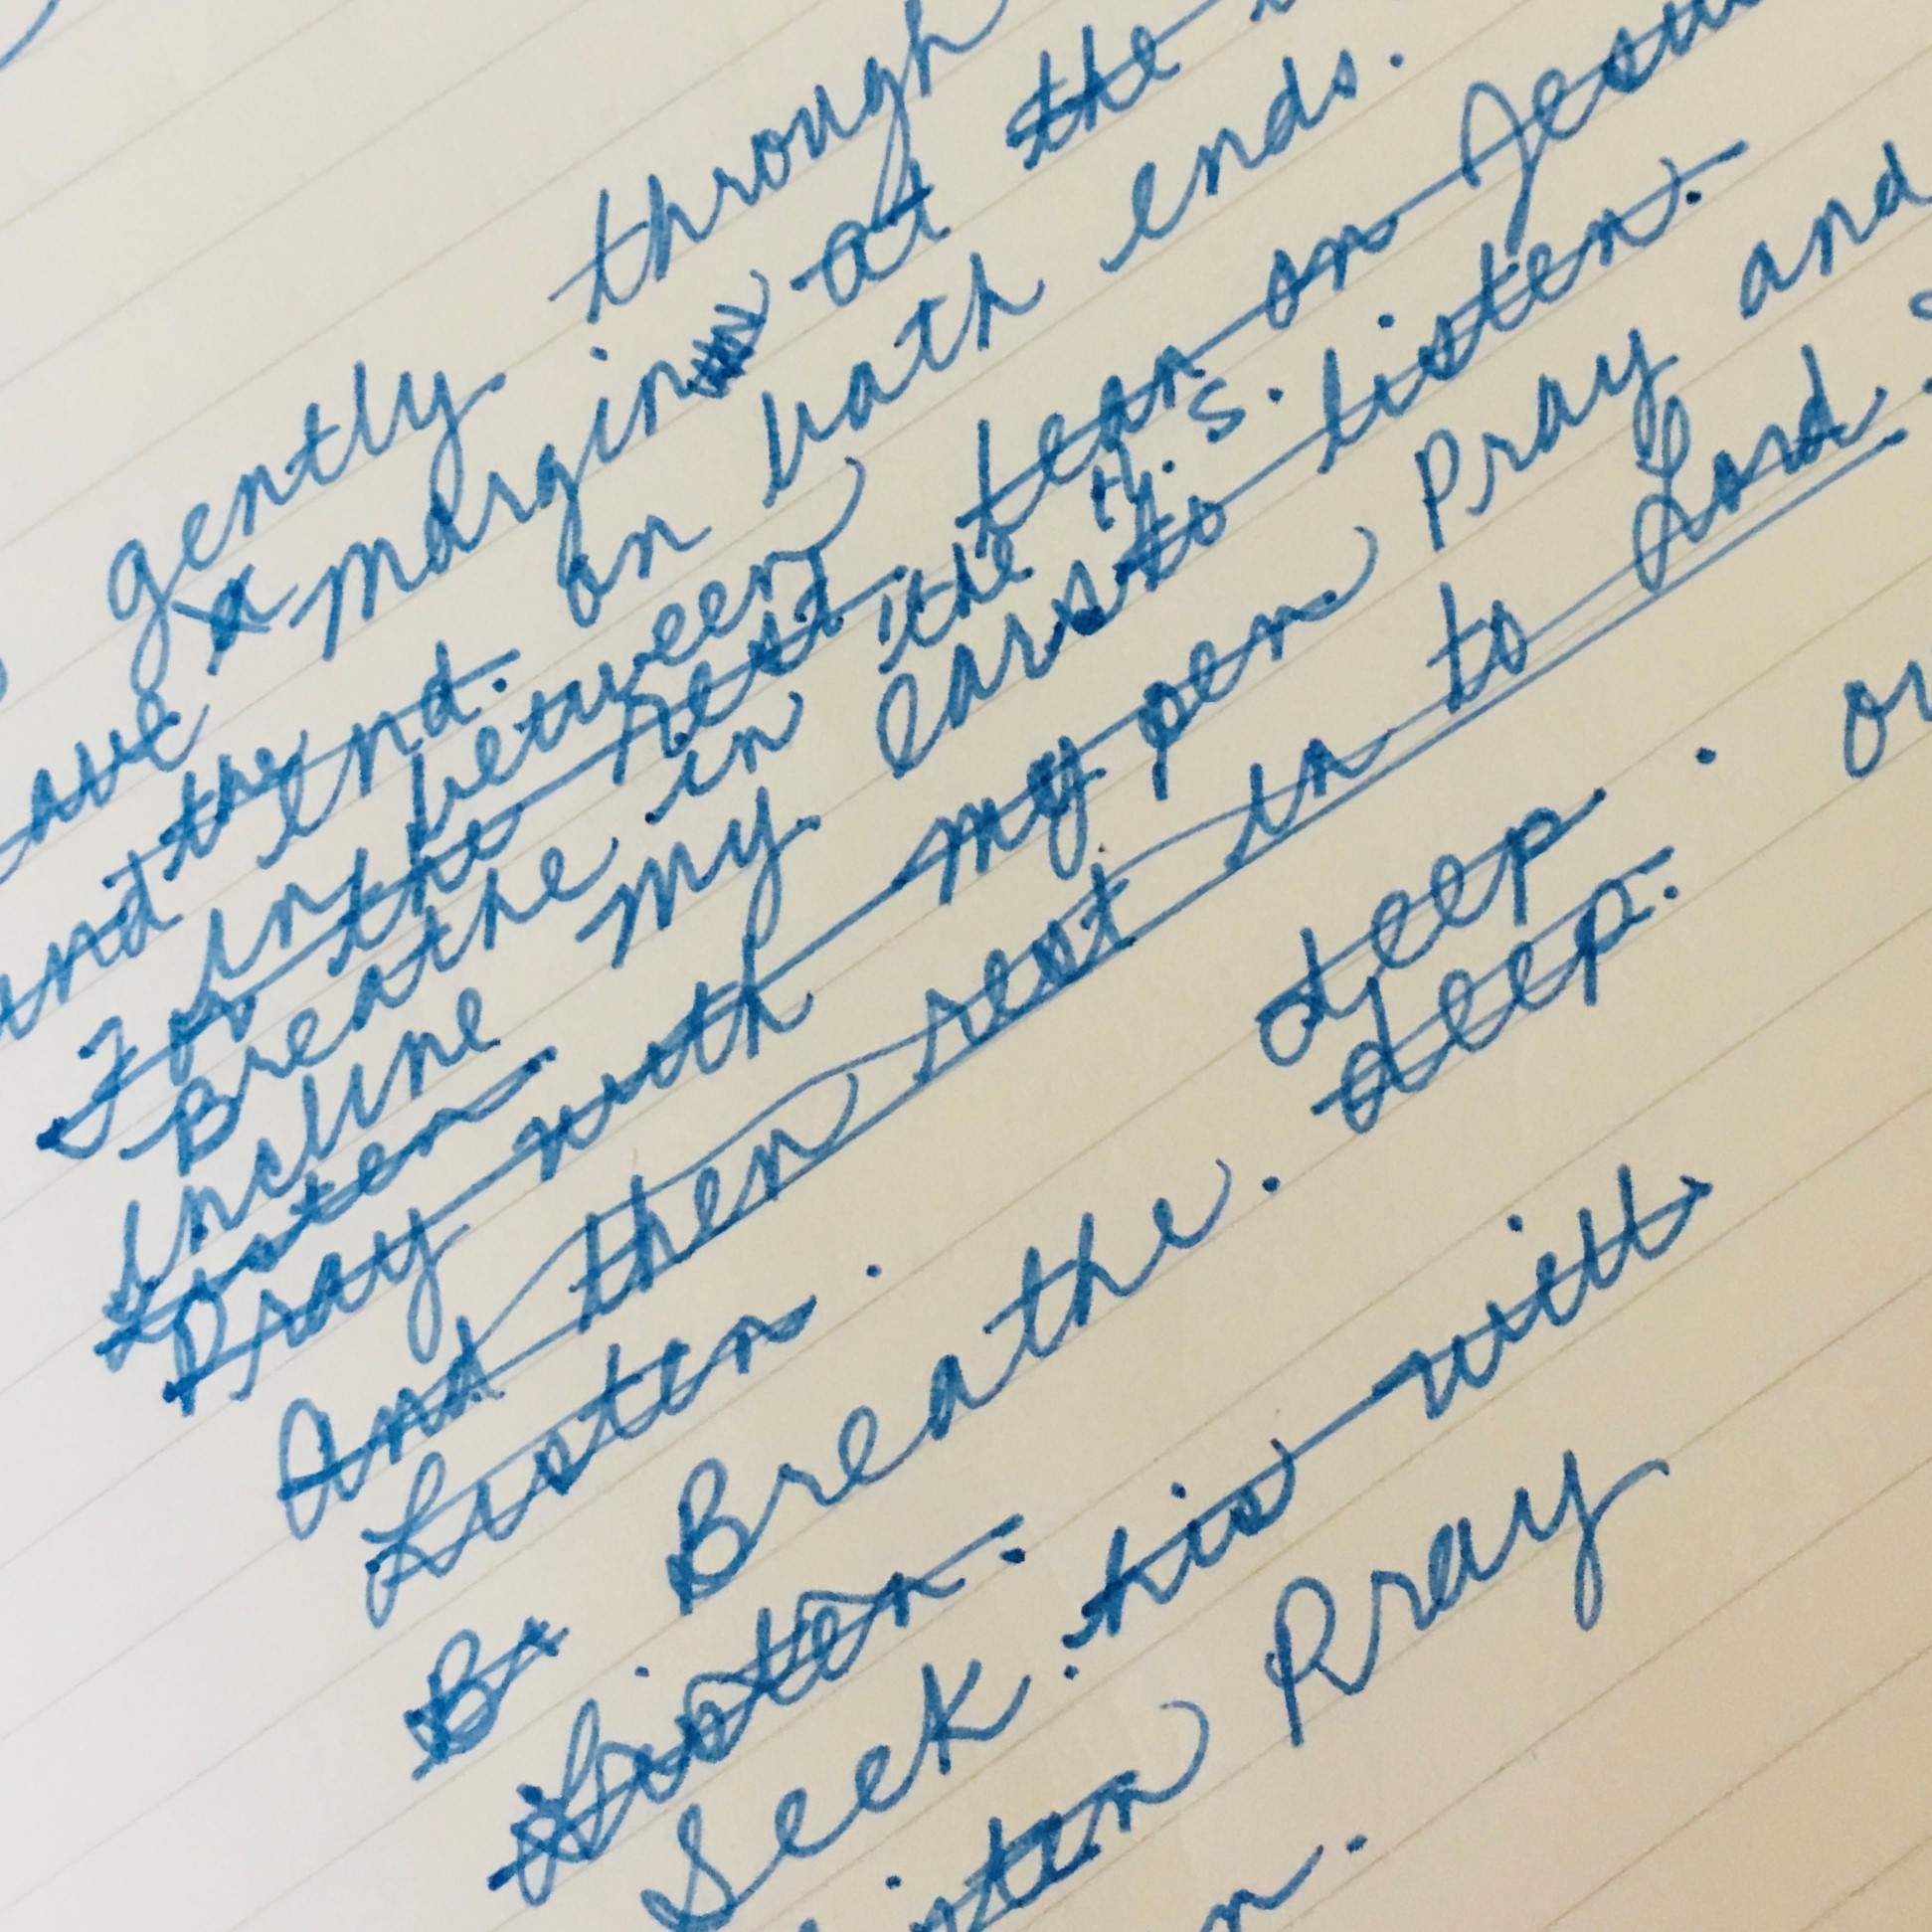 gently through
a margin at the
and the end. on both ends.
in between
For the rest lean on Jesus
Breathe in the H. S.
incline my ears to listen.
Listen
Pray with my pen. Pray and
And then rest in to Lord.
Listen.
B Breathe. deep
deep.
Listen.
Seek. his will
Listen Pray